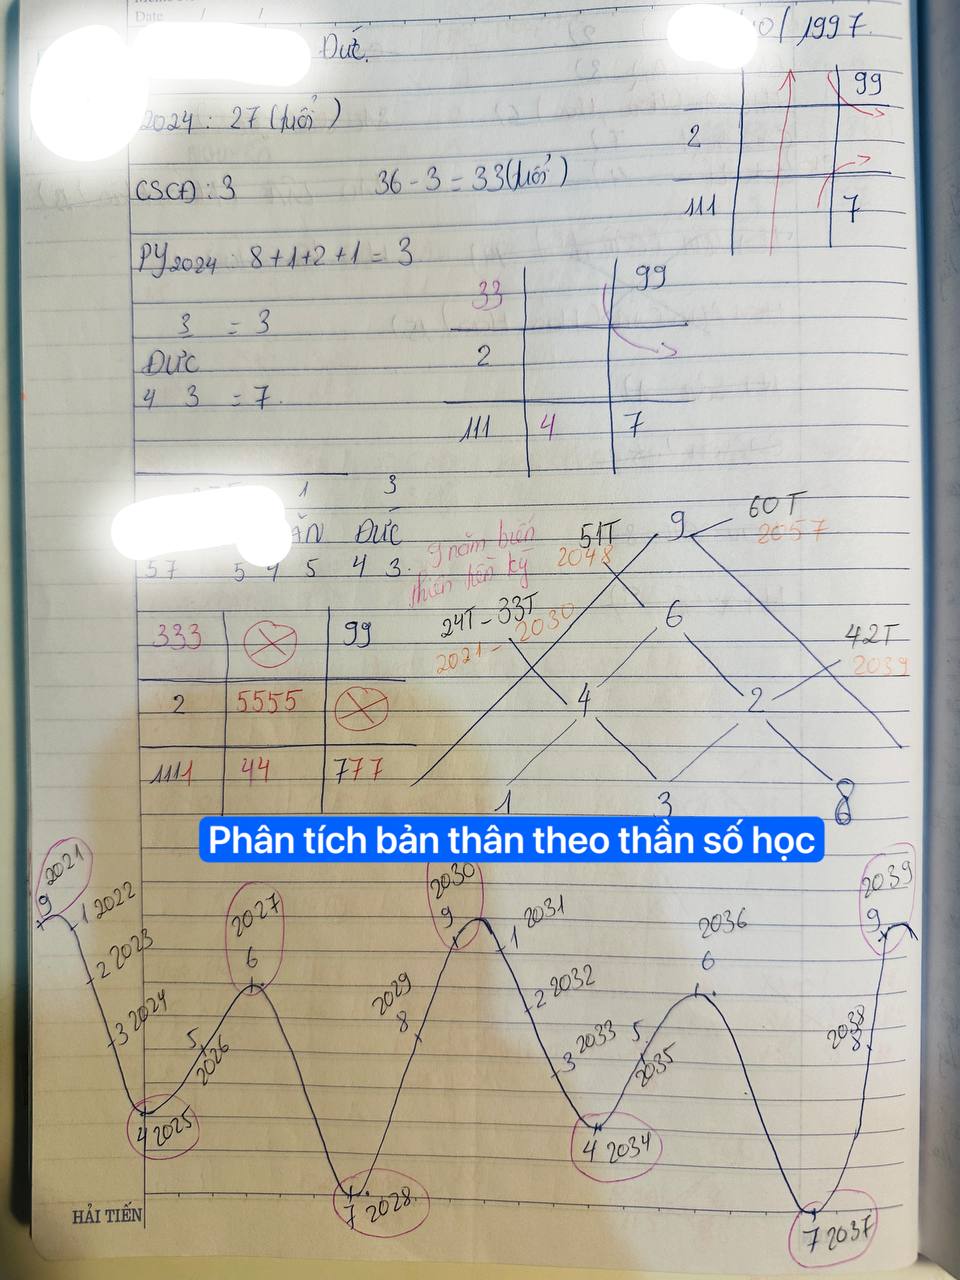 Date / /
Đức.
0/1997.
2024: 27 (tuổi)
99
2
111 7
CSCĐ: 3 36 - 3 = 33 (tuổi)
PY2024: 8+1+2+1 = 3
3 = 3
ĐỨC
4 3 = 7.
33 99
2
111 4 7
1 3
ĂN ĐỨC
57 5 4 5 4 3.
9 năm biến
thiên tiền kỳ
333 99
2 5555
1111 44 777
9 60T
2057
51T
2048
6
24T - 33T
2021 - 2030
42T
2039
4 2
1 3 8
Phân tích bản thân theo thần số học
9 2021
1 2022
2 2023
3 2024
4 2025
5 2026
2027
6
7 2028
2029
8
2030
9
1 2031
2 2032
3 2033
4 2034
5 2035
2036
6
7 2037
2038
8
2039
9
HẢI TIẾN